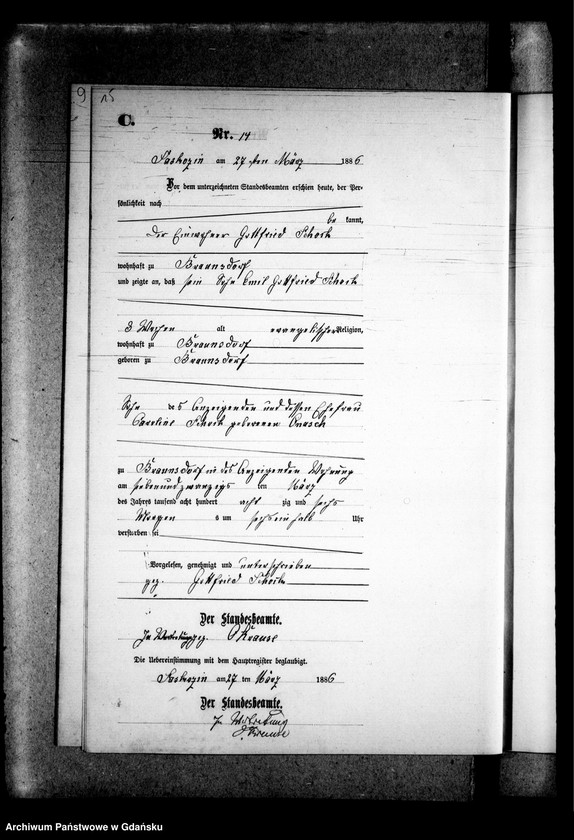 9
15
C.
Nr. 14
am 27 ten März 1886
Vor dem unterzeichneten Standesbeamten erschien heute, der Per-
sönlichkeit nach
be kannt,
der Einwohner Gottfried Schock
wohnhaft zu Braunsdorf
und zeigte an, daß sein Sohn Emil Gottfried Schock
3 Wochen alt evangelischer Religion,
wohnhaft zu Braunsdorf
geboren zu Braunsdorf
Sohn des Anzeigenden und dessen Ehefrau
Caroline Schock geborenen
zu Braunsdorf in des Anzeigenden Wohnung
am siebenundzwanzigs ten März
des Jahres tausend acht hundert acht zig und sechs
Morgen s um sechseinhalb Uhr
verstorben sei
Vorgelesen, genehmigt und unterschrieben
gez. Gottfried Schock
Der Standesbeamte.
In Vertretung gez. Krause
Die Uebereinstimmung mit dem Hauptregister beglaubigt.
am 27 ten März 1886
Der Standesbeamte.
In Vertretung
Krause
Archiwum Państwowe w Gdańsku